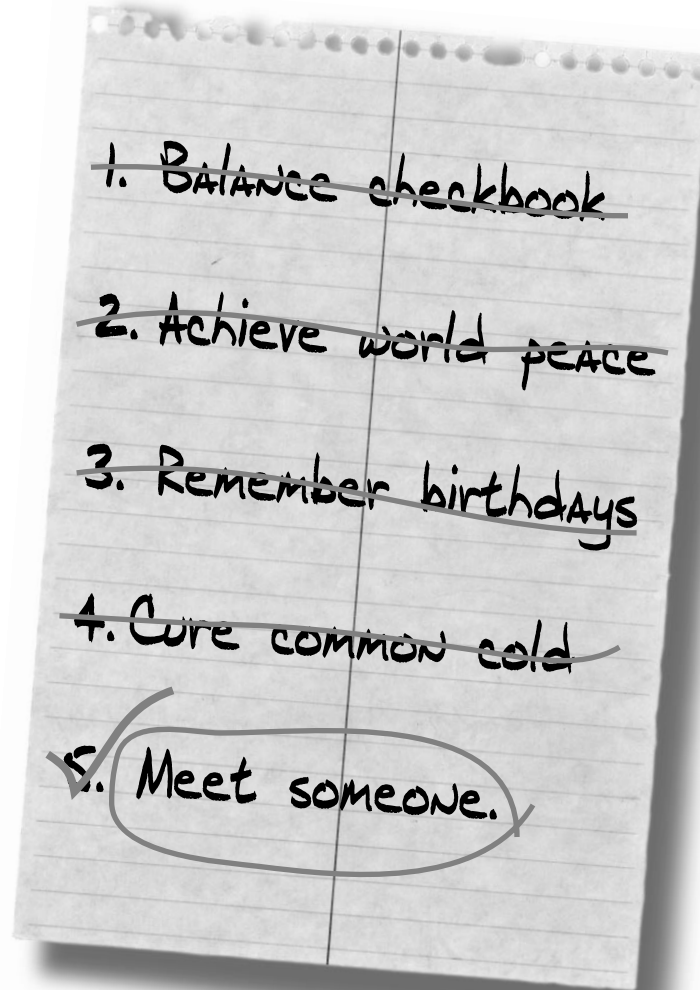 1. Balance checkbook
2. Achieve world peace
3. Remember birthdays
4. Cure common cold
5. Meet someone.